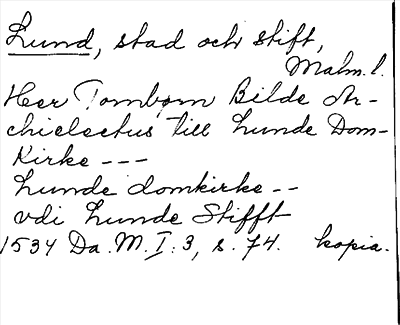 Lund, stad och stift,
Malm. l.
Her Tombøm Bilde Ar-
chielectus till Lunde Dom-
kirke ---
Lunde domkirke --
vdi Lunde Stifft
1534 Da. M. I: 3, s. 74. kopia.